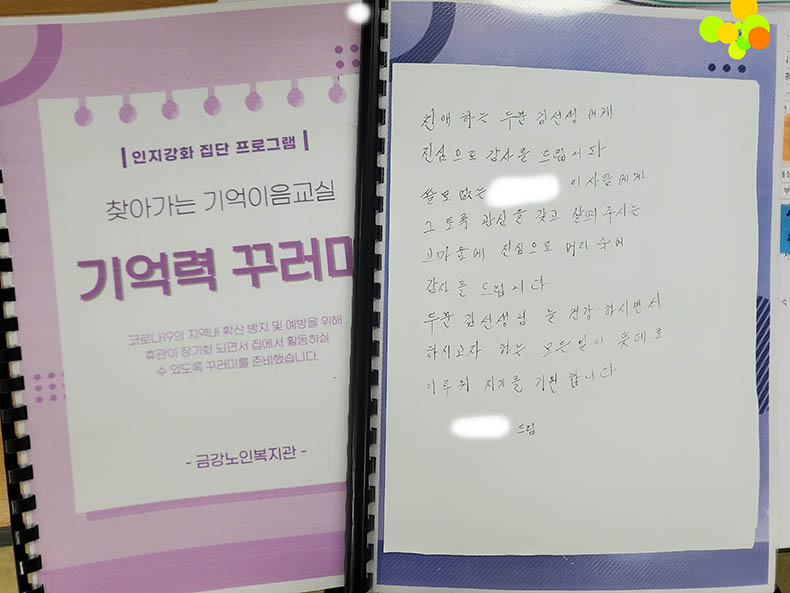 인지강화 집단 프로그램
찾아가는 기억이음교실
기억력 꾸러미
코로나19의 지역내 확산 방지 및 예방을 위해
휴관이 장기화 되면서 집에서 활동하실
수 있도록 꾸러미를 준비했습니다.
- 금강노인복지관 -
친애 하는 두분 김선생 에게
진심으로 감사를 드립니다
쓸모 없는 이 사람 에게
그 토록 관심을 갖고 살펴 주시는
고마움에 진심으로 머리 숙여
감사를 드립니다
두분 김선생님 늘 건강 하시면서
하시고자 하는 모든일이 뜻데로
이루워 지기를 기원 합니다
드림